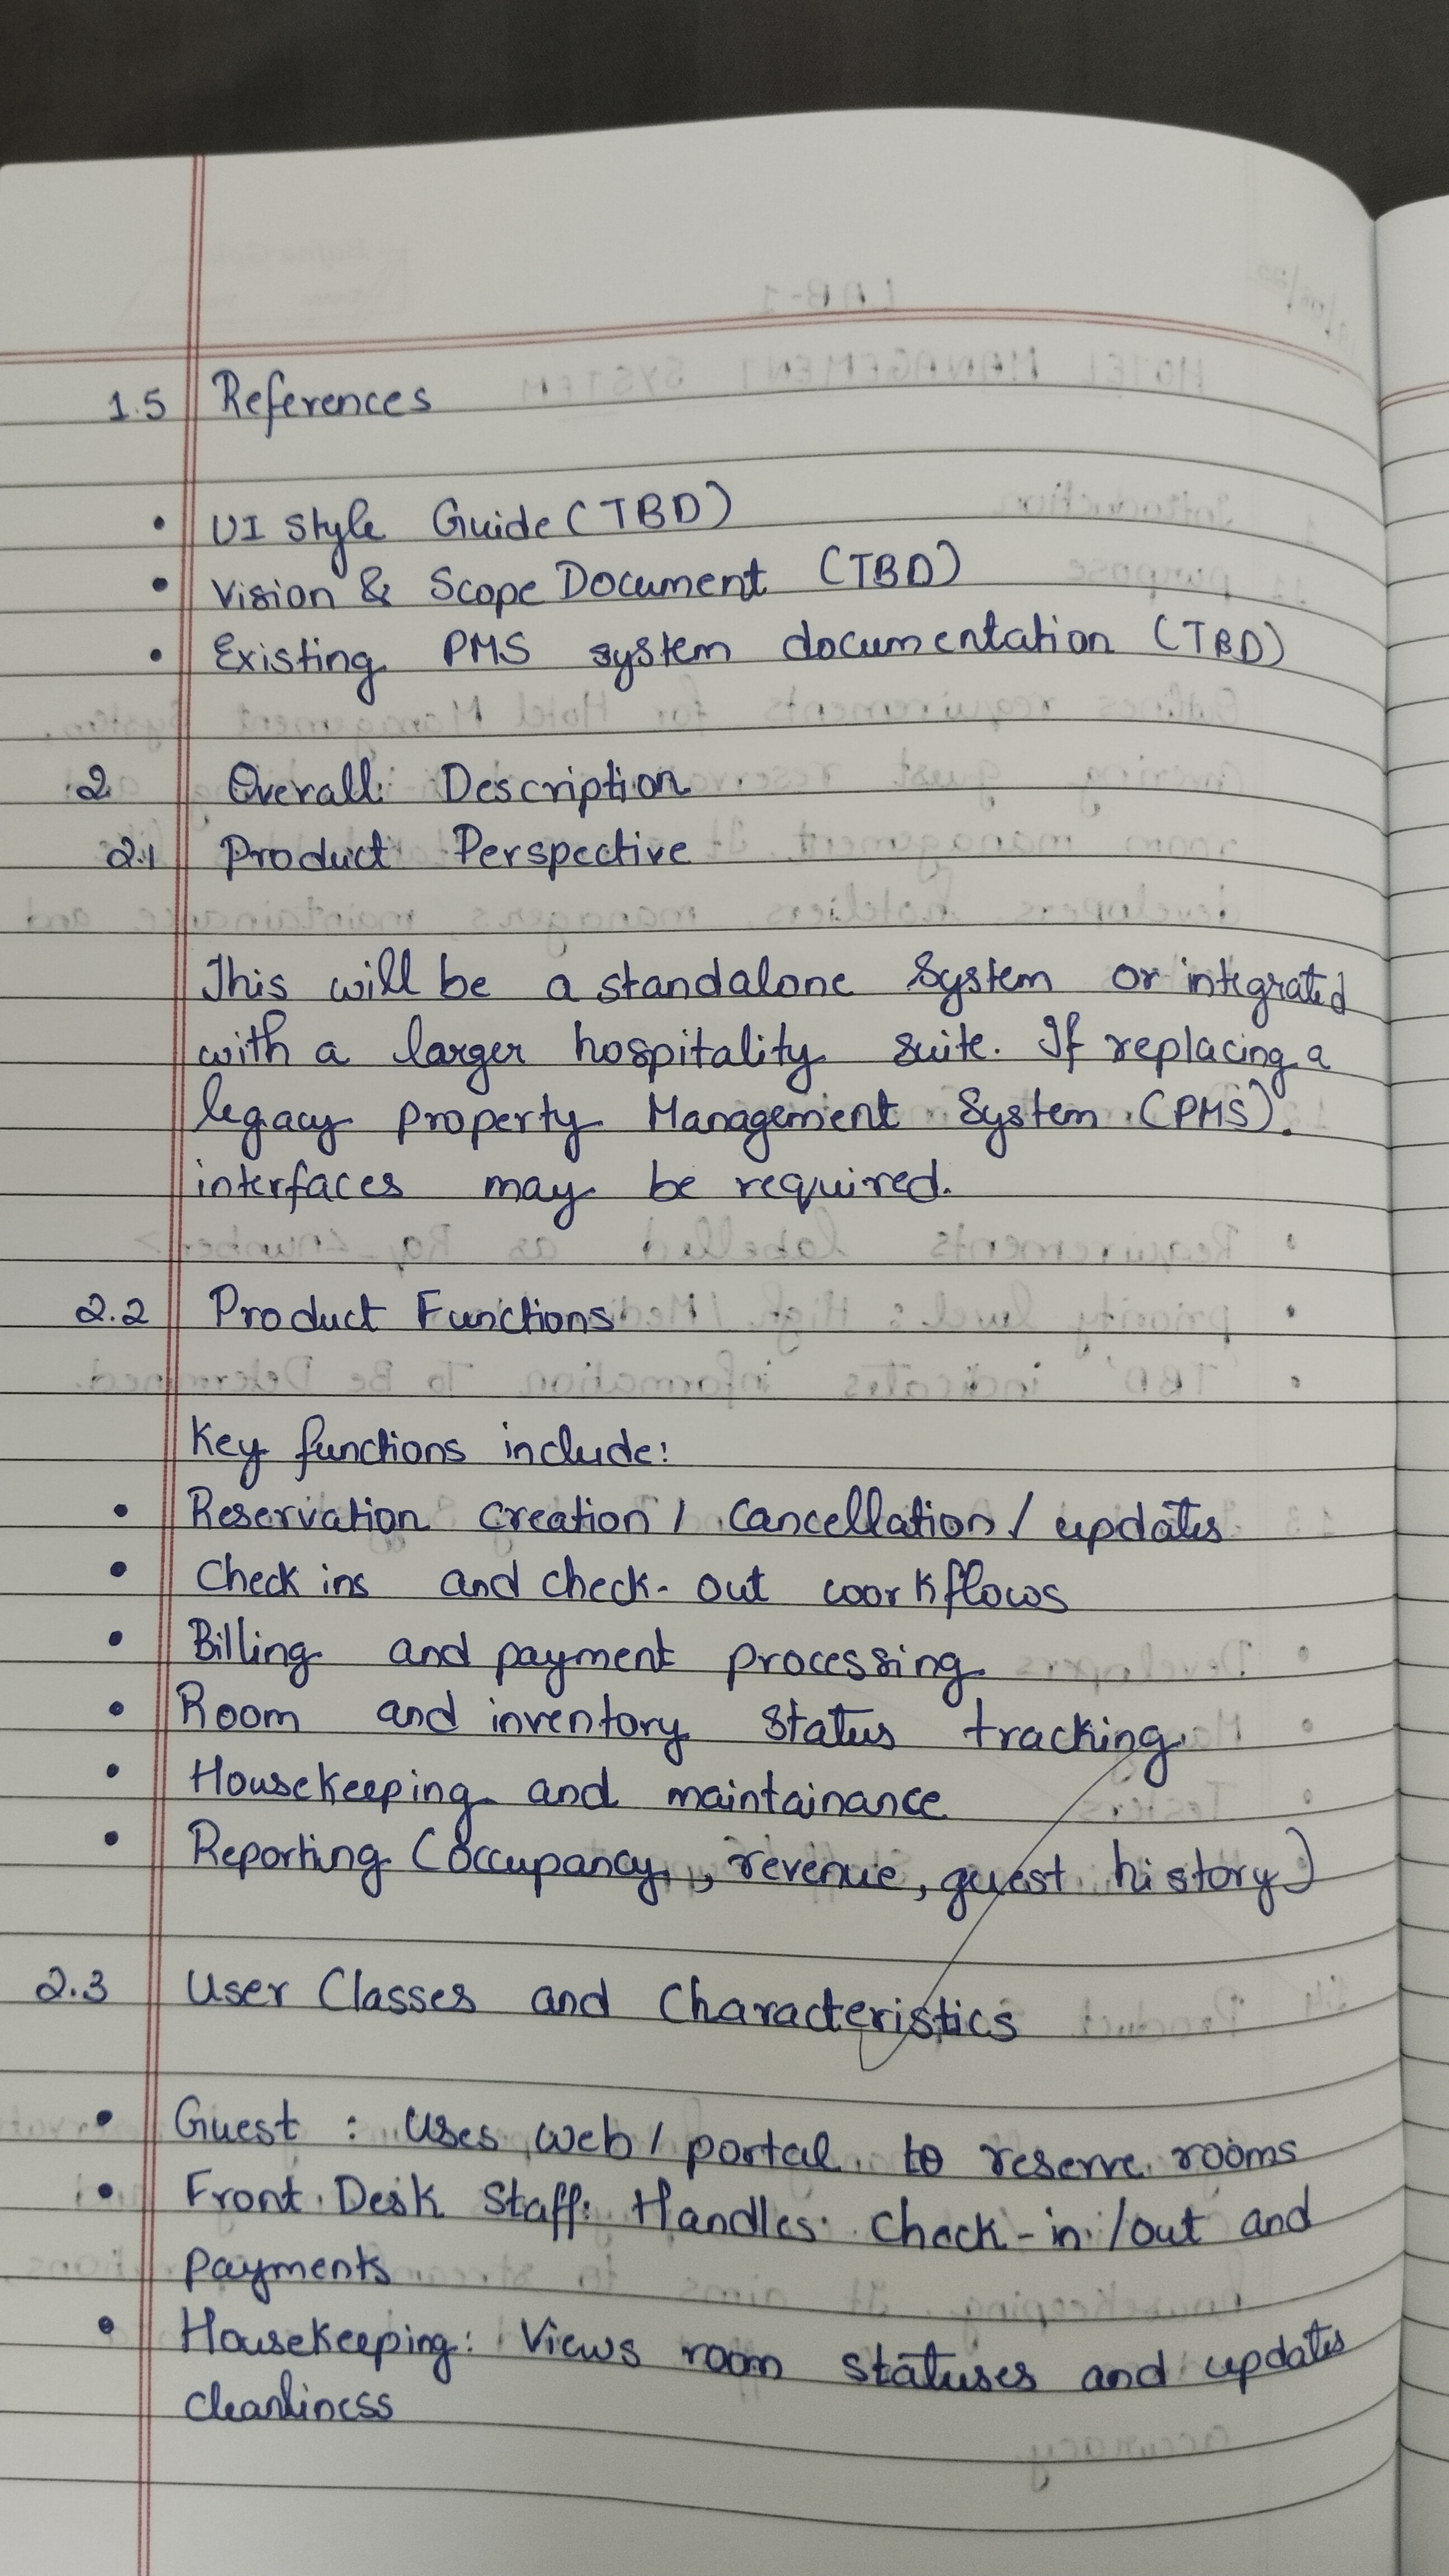 1.5 References
• UI Style Guide (TBD)
• Vision & Scope Document (TBD)
• Existing PMS system documentation (TBD)
2 Overall Description
2.1 Product Perspective
This will be a standalone System or integrated
with a larger hospitality suite. If replacing a
legacy property Management System (PMS).
interfaces may be required.
2.2 Product Functions
Key functions include:
• Reservation creation / cancellation / updates
• Check ins and check-out workflows
• Billing and payment processing
• Room and inventory status tracking
• Housekeeping and maintainance
• Reporting (Occupancy, revenue, guest history)
2.3 User Classes and Characteristics
• Guest : Uses web / portal to reserve rooms
• Front Desk Staff: Handles check-in /out and
payments
• Housekeeping: Views room statuses and updates
cleanliness